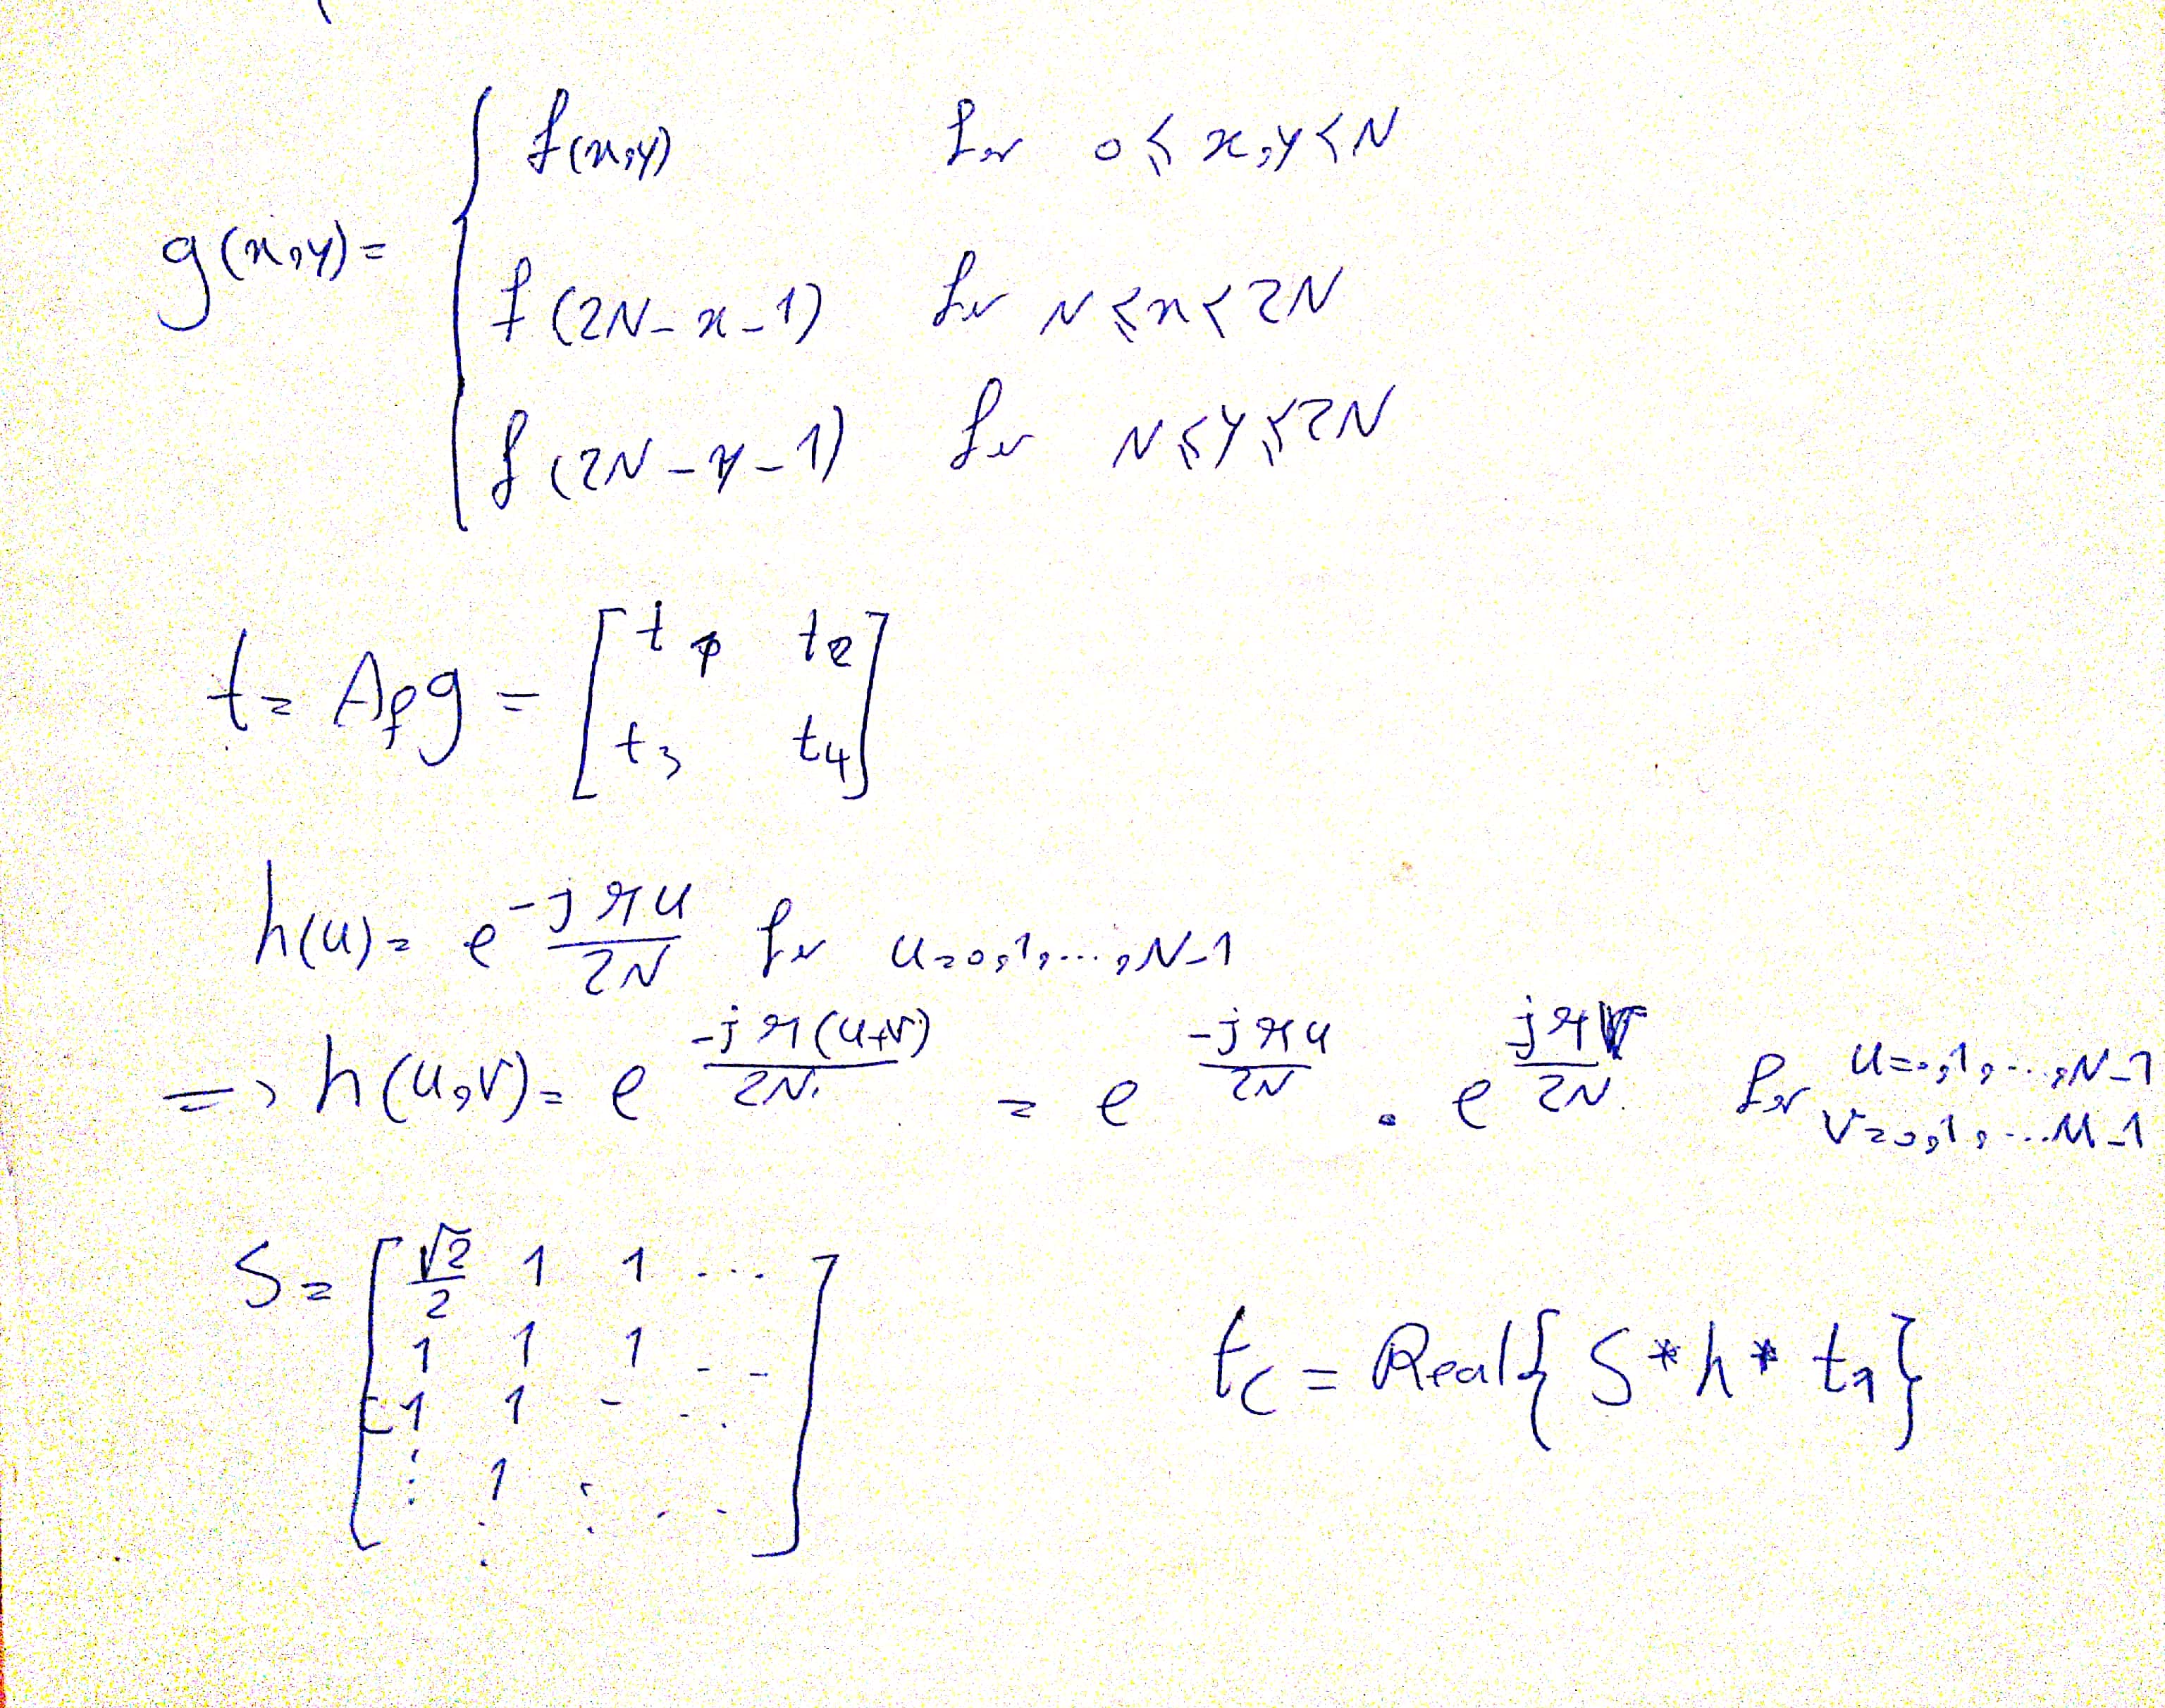 f(x,y) for 0 ⩽ x,y < N
g(x,y) =
f(2N-x-1) for N ⩽ x < 2N
f(2N-y-1) for N ⩽ y ⩽ 2N
t = A_f g = [t_1 t_2
t_3 t_4]
h(u) = e^{-jπu/2N} for u=0,1,...,N-1
=> h(u,v) = e^{-jπ(u+v)/2N} = e^{-jπu/2N} . e^{jπv/2N} for u=0,1,...,N-1
v=0,1,...M-1
S = [√2/2 1 1 ...
1 1 1 ...
1 1 - ...
⋮ 1 ⋮ ...]
t_c = Real{S*h*t_1}